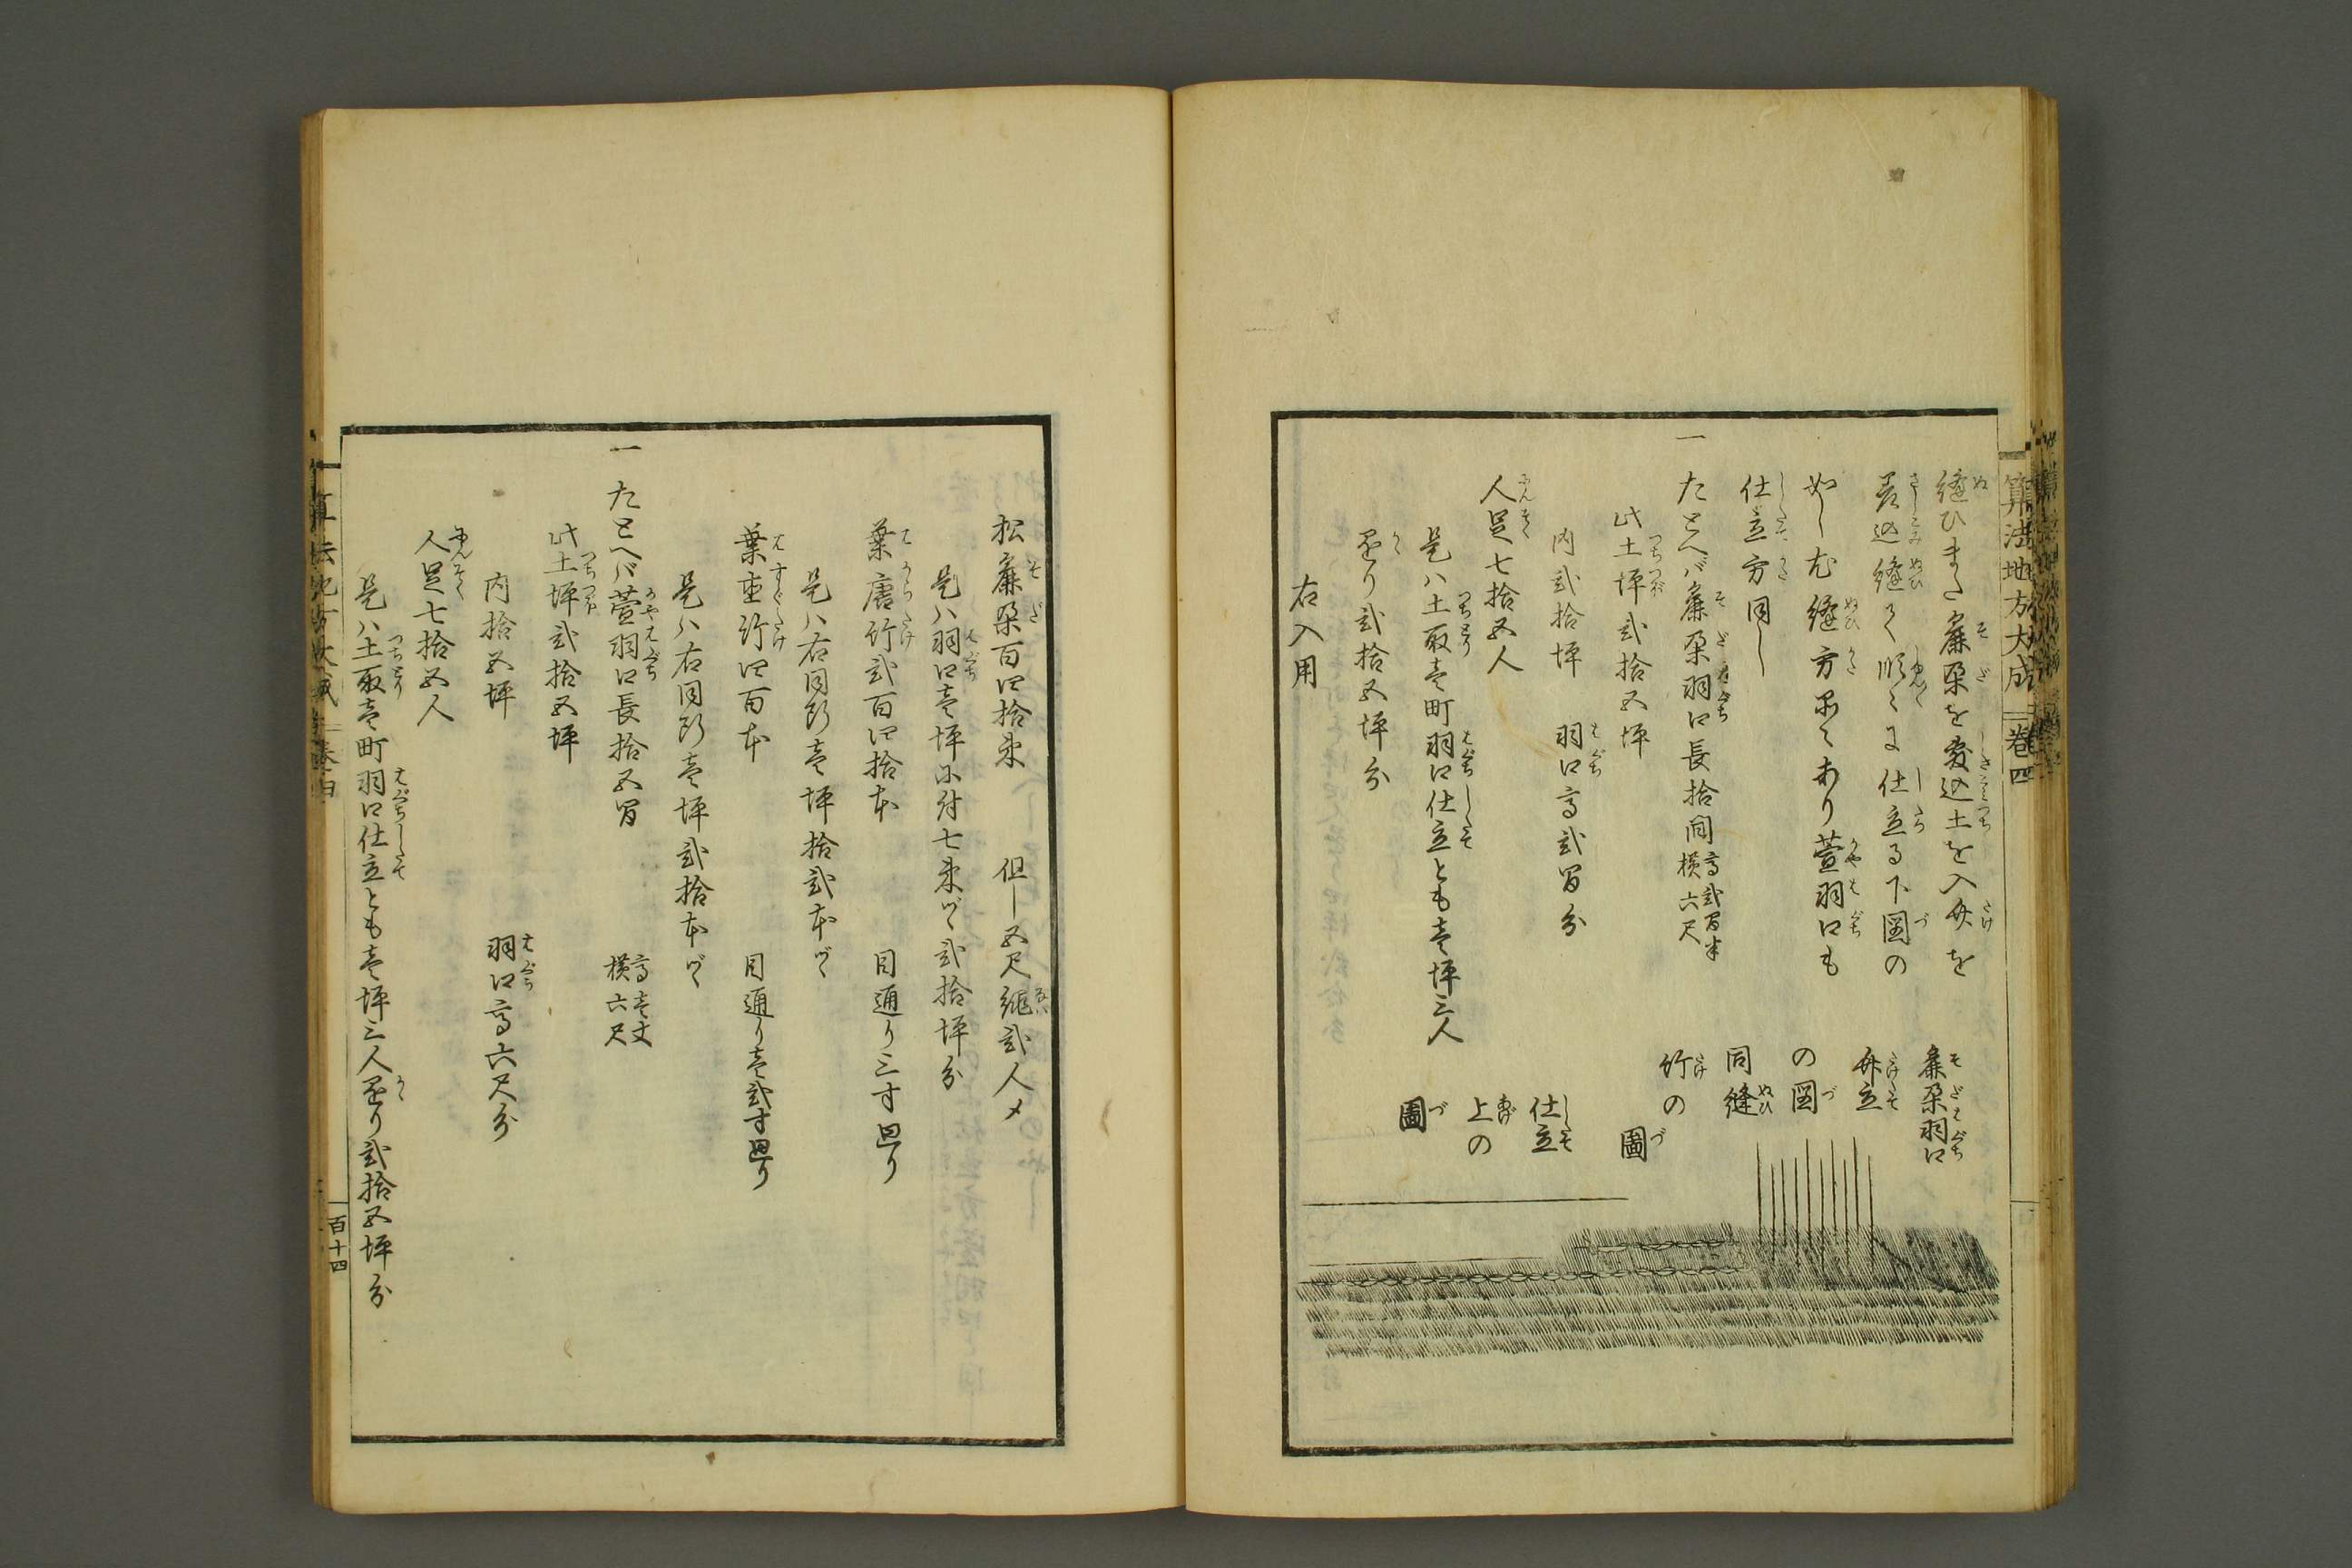 算法地方大成 巻四
縫ひまた麁朶を敷込土を入竹を
差込縫て順々に仕立る下図の
如し尤縫方品々あり萱羽口も
仕立方同し
一 たとへバ麁朶羽口長拾間 高弐間半 横六尺
此土坪弐拾五坪
内弐拾坪 羽口高弐間分
人足七拾五人
是ハ土取壱町羽口仕立とも壱坪三人
置り弐拾五坪分
右入用
麁朶羽口
竹立
の図
同縫
竹の
圖
仕立
上の
圖
松麁朶百四拾束 但し五尺縄弐人〆
是ハ羽口壱坪に付七束ヅヽ弐拾坪分
葉唐竹弐百四拾本 目通り三寸廻り
是ハ右同断壱坪拾弐本ヅヽ
葉直竹四百本 目通り壱弐寸廻り
是ハ右同断壱坪弐拾本ヅヽ
一 たとヘバ萱羽口長拾五間 高壱丈 横六尺
此土坪弐拾五坪
内拾五坪 羽口高六尺分
人足七拾五人
是ハ土取壱町羽口仕立とも壱坪三人置り弐拾五坪分
算法地方大成 巻四
百十四